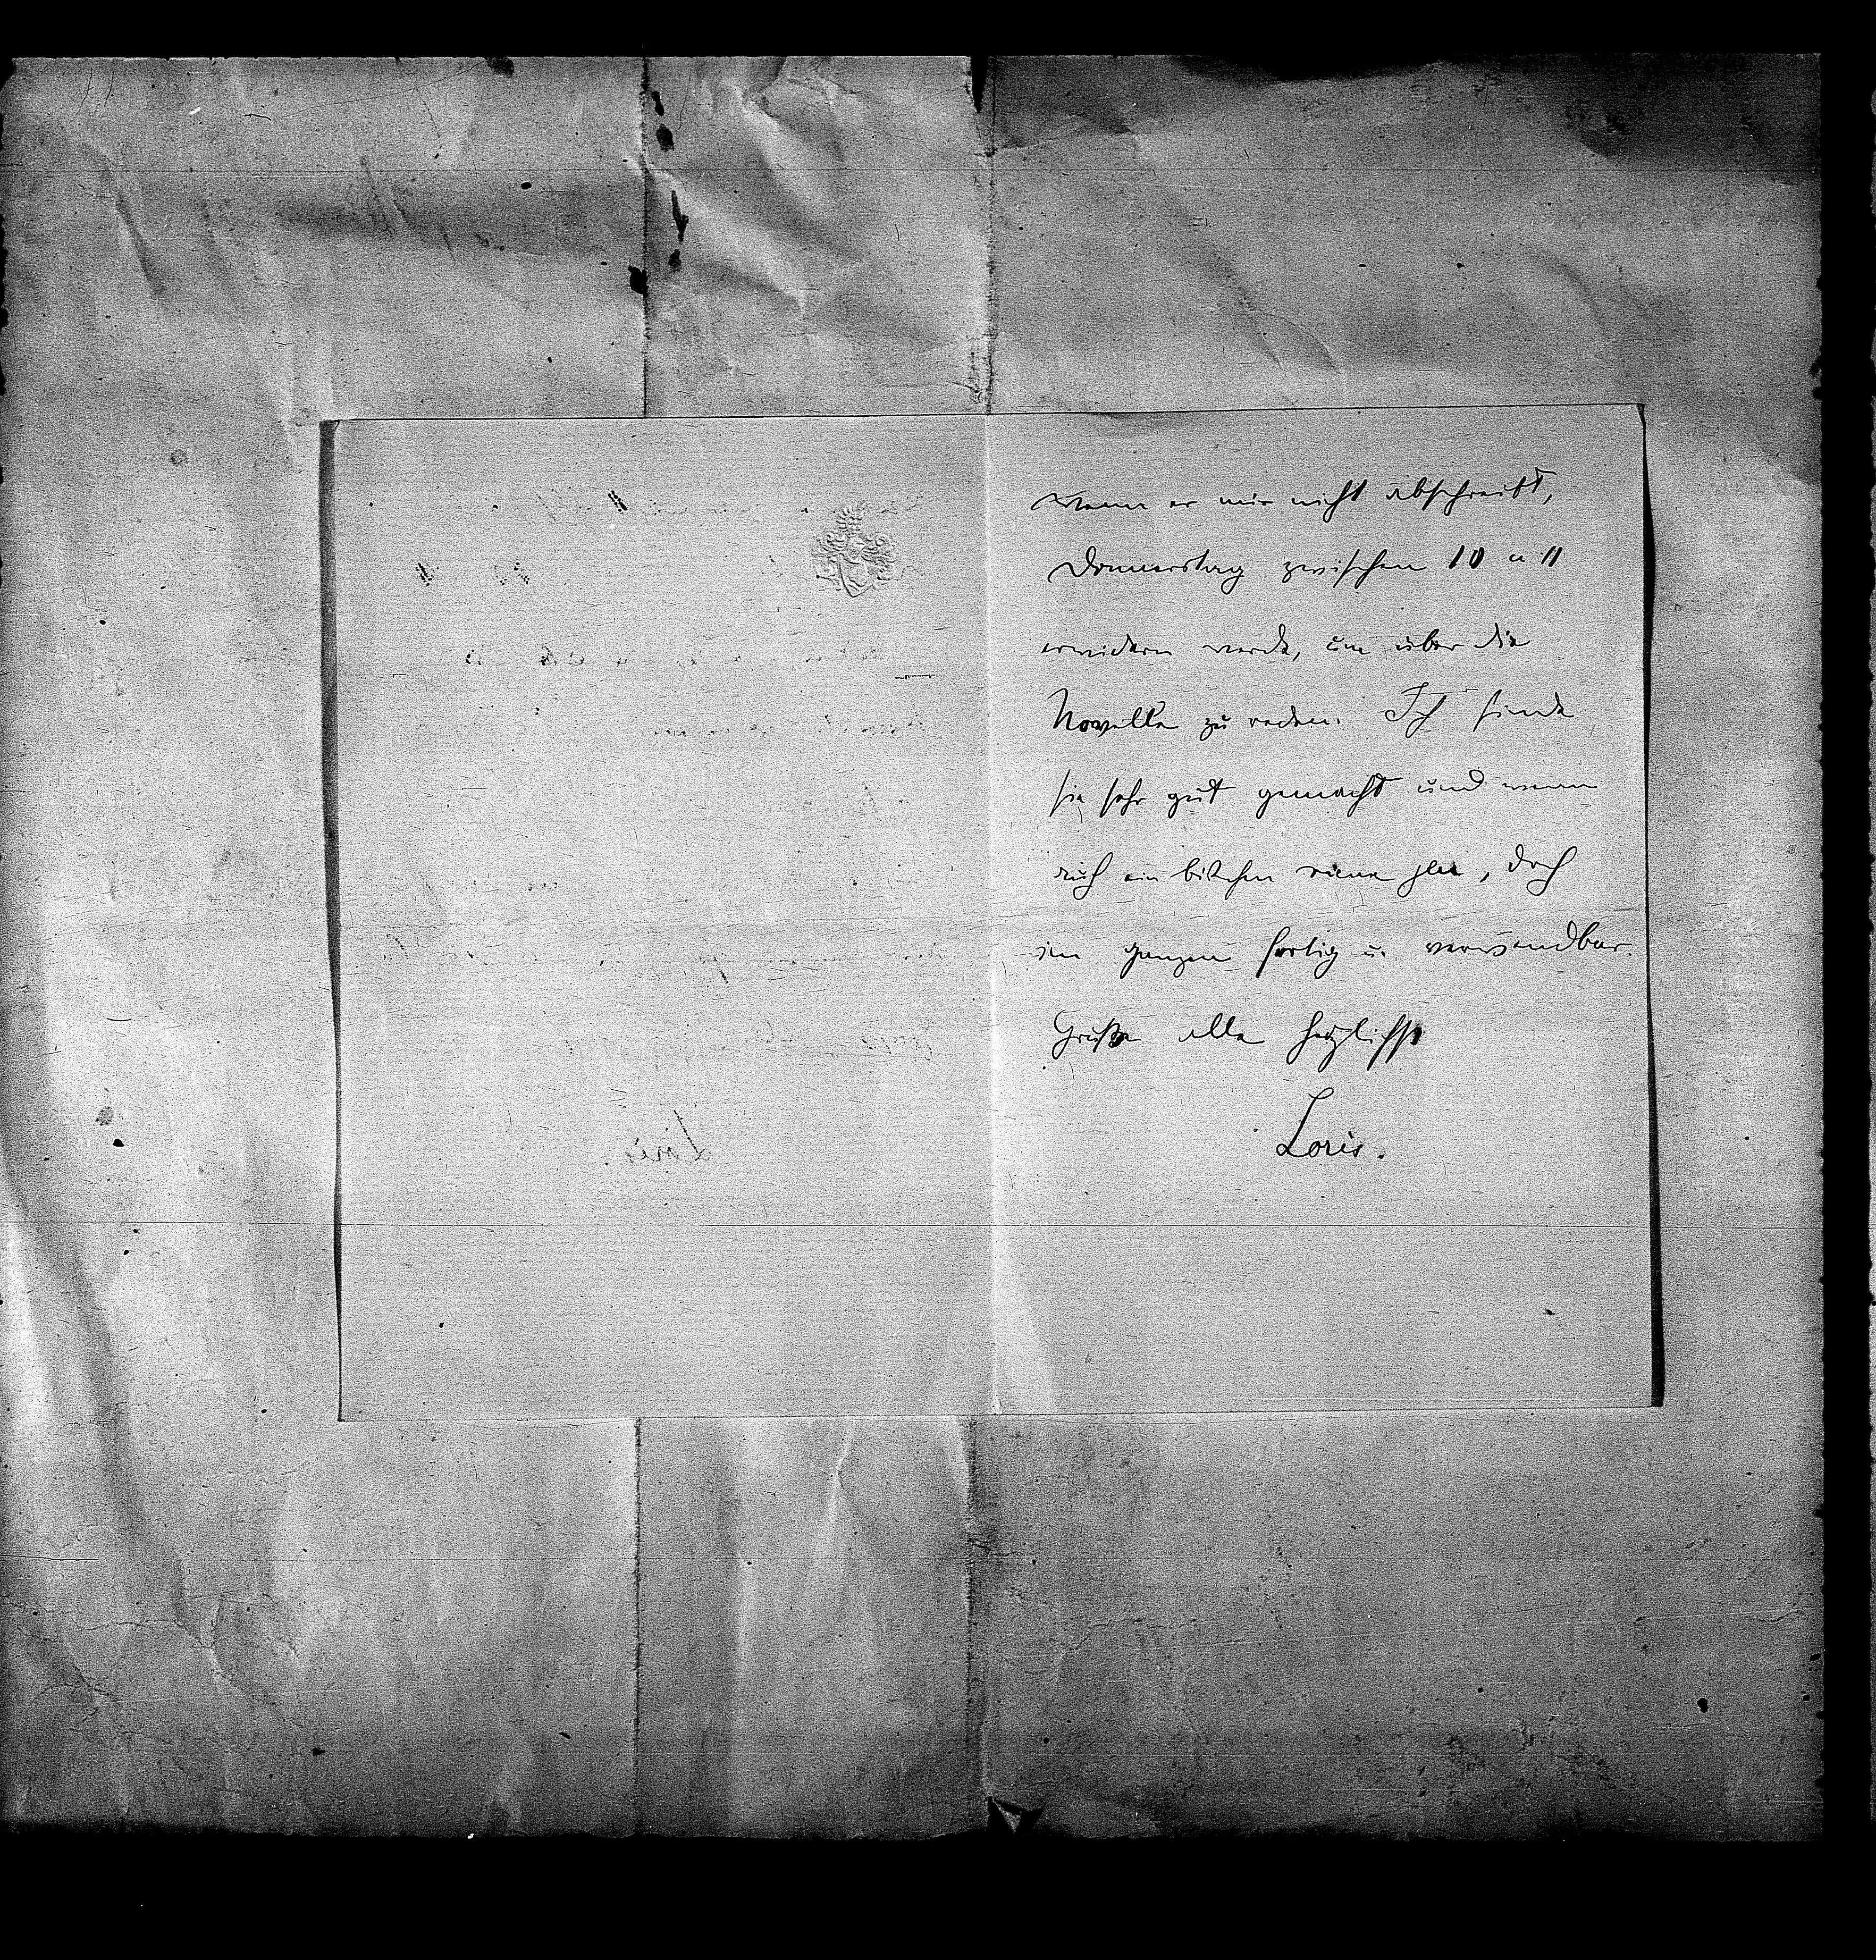 wenn er mir nicht abschreibt,
Donnerstag zwischen 10 u 11
erwidern werde, um über die
Novelle zu reden. Ich finde
sie sehr gut gemacht und wenn
auch ein bischen vieux jeu, doch
im ganzen fertig u. verwendbar.
Grüße alle herzlichst
Loris.